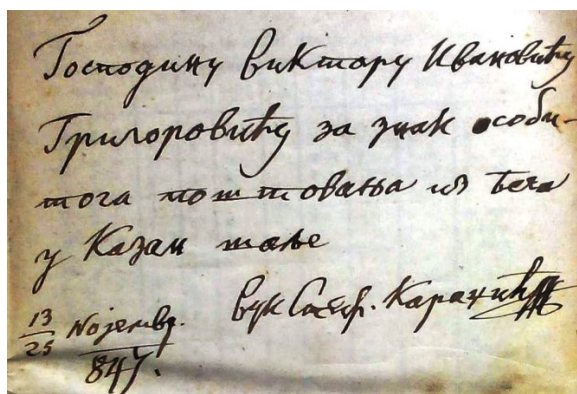 Господину Виктору Ивановићу
Григоровићу за знак особи-
тога поштовања из Беча
у Казан шаље
Вук Стеф. Караџић
13/25 Nојемвр.
847.